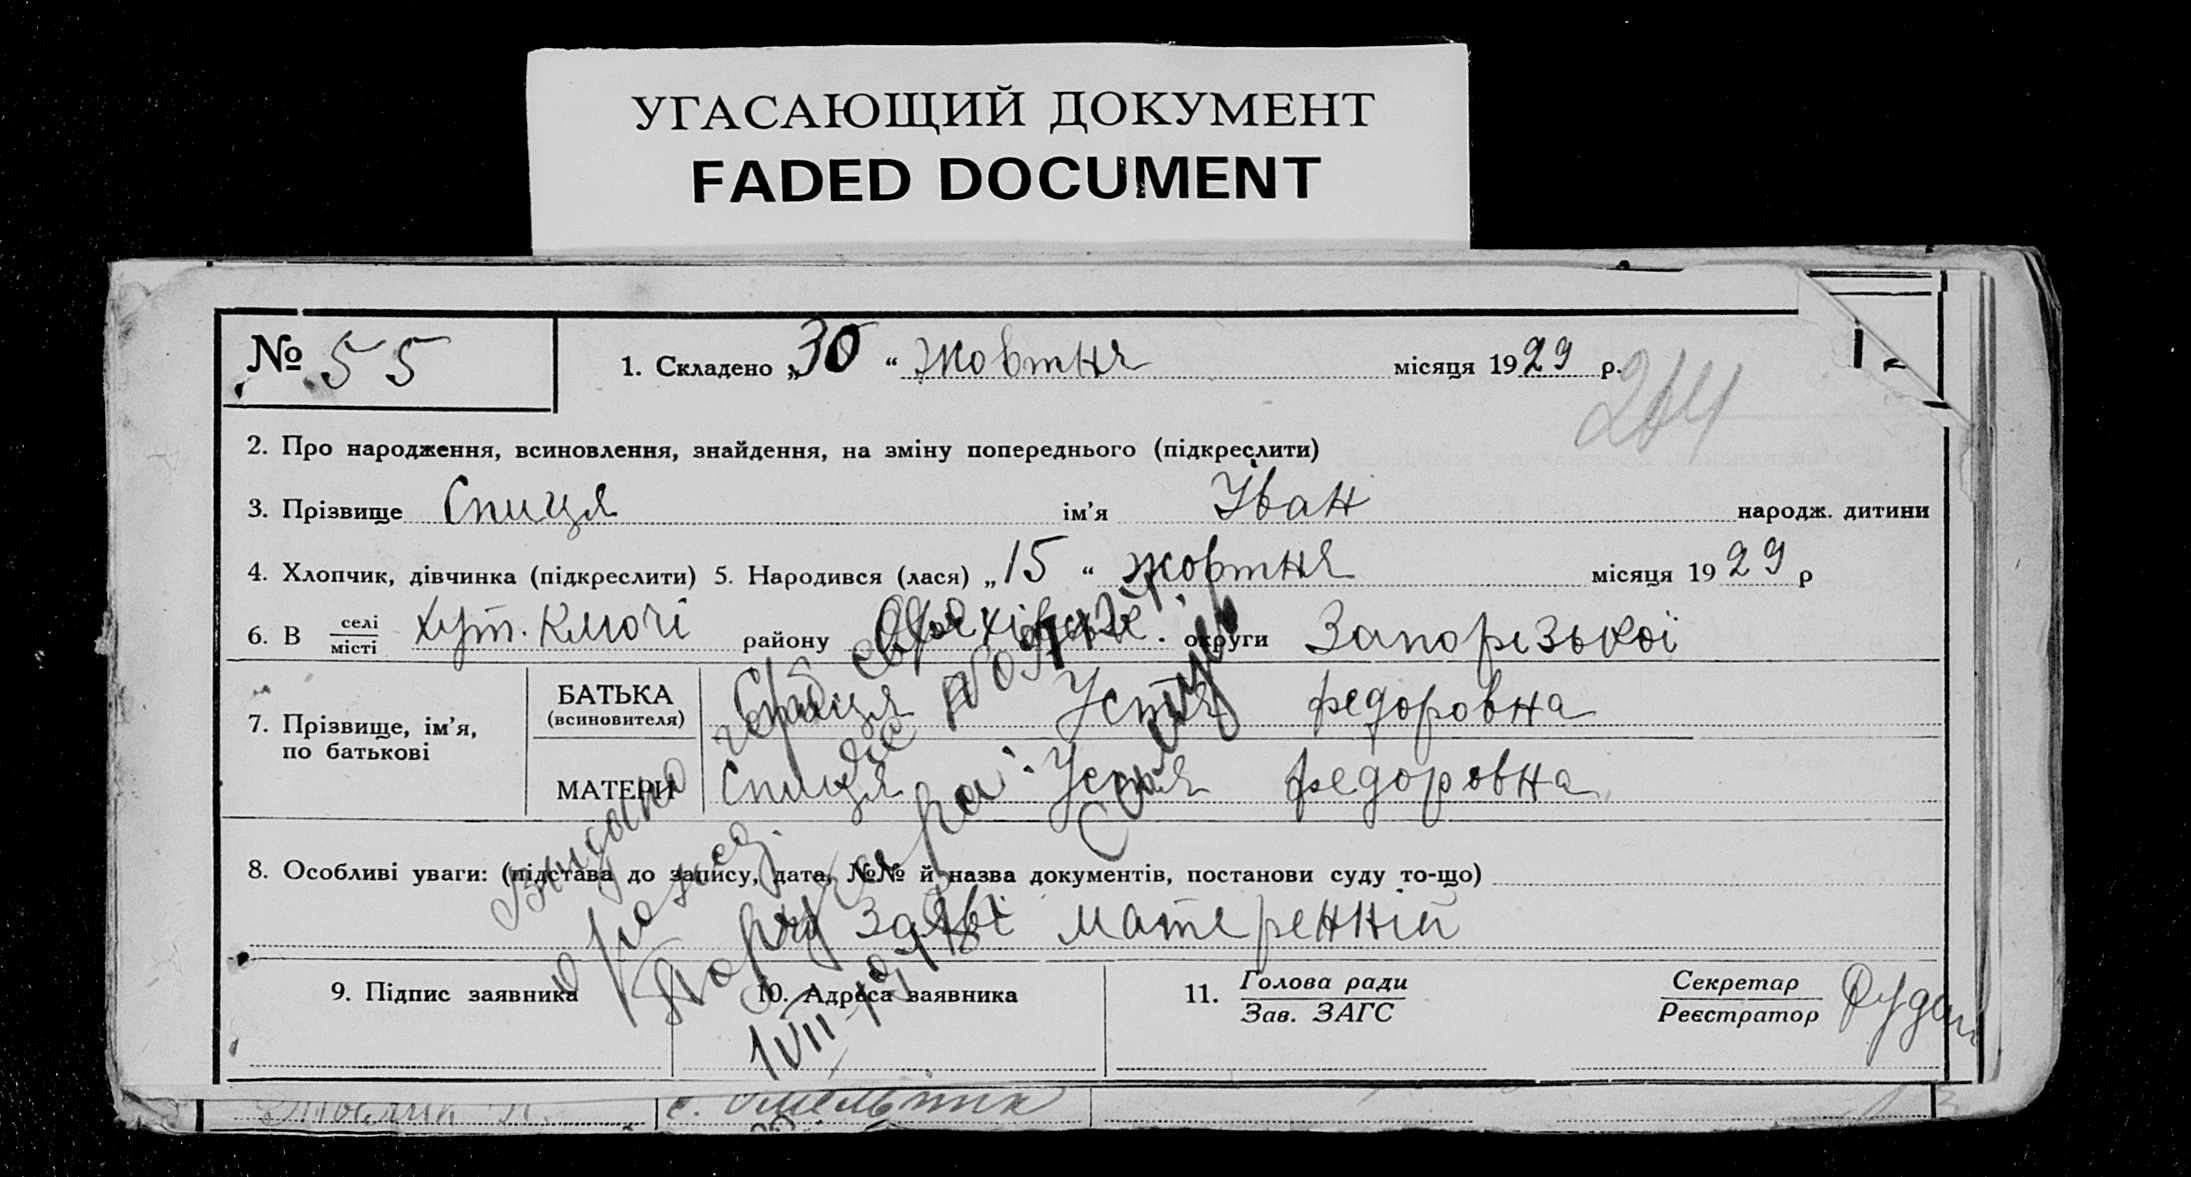 УГАСАЮЩИЙ ДОКУМЕНТ
FADED DOCUMENT
№ 55
1. Складено „30“ жовтня місяця 1929 р.
264
2. Про народження, всиновлення, знайдення, на зміну попереднього (підкреслити)
3. Прізвище Спиця ім’я Іван народж. дитини
4. Хлопчик, дівчинка (підкреслити) 5. Народився (лася) „15“ жовтня місяця 1929 р
6. В селі місті хут. Ключі району округи Запорізької
7. Прізвище, ім’я, по батькові
БАТЬКА (всиновителя) Спиця Устя федоровна
МАТЕРИ Спиця Устя федоровна
8. Особливі уваги: (підстава до запису, дата, №№ й назва документів, постанови суду то-що)
Заяві матеренній
9. Підпис заявника
10. Адреса заявника
11. Голова ради Зав. ЗАГС
Секретар Реєстратор
Видано
1/VII-1948